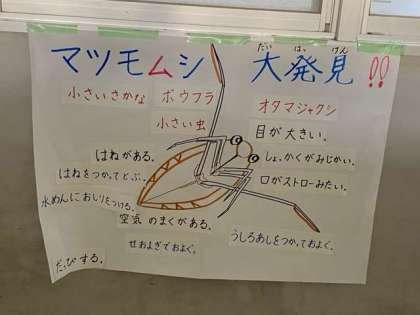 マツモムシ 大発見!!
だい はっ けん
小さいさかな ボウフラ オタマジャクシ
小さい虫
目が大きい。
しょっかくがみじかい。
口がストローみたい。
はねがある。
はねをつかってとぶ。
水めんにおしりをつける。
空気のまくがある。
せおよぎでおよぐ。
うしろあしをつかっておよぐ。
だっぴする。